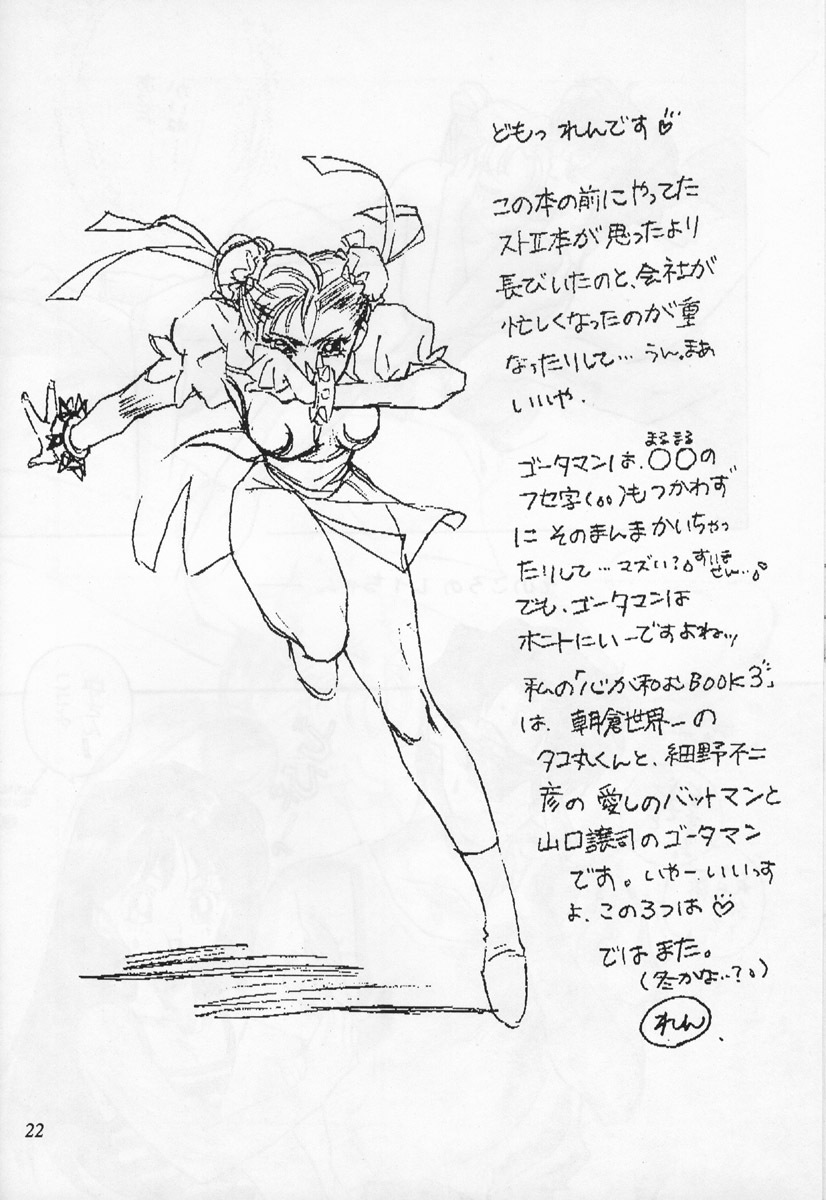 どもっ れんです♡
この本の前にやってた
ストⅡ本が思ったより
長びいたのと、会社が
忙しくなったのが重
なったりして… うん。まあ
いいや.
まるまる
ゴータマンは、〇〇の
フセ字(。。)もつかわず
に そのまんまかいちゃっ
たりして…マズい?
すいま
せん…
でも、ゴータマンは
ホントにいーですよねッ
私の「心が和むBOOK3」
は、朝倉世界一の
タコ丸くんと、細野不二
彦の 愛しのバットマンと
山口譲司のゴータマン
です。いやー いいっす
よ、この3つは♡
では また。
(冬かな…?。)
れん.
22